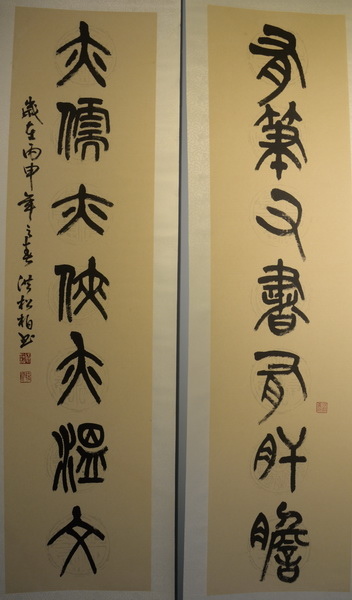 有筆又書有肝膽
亦儒亦俠亦溫文
歲在丙申年之春 洪松柏書